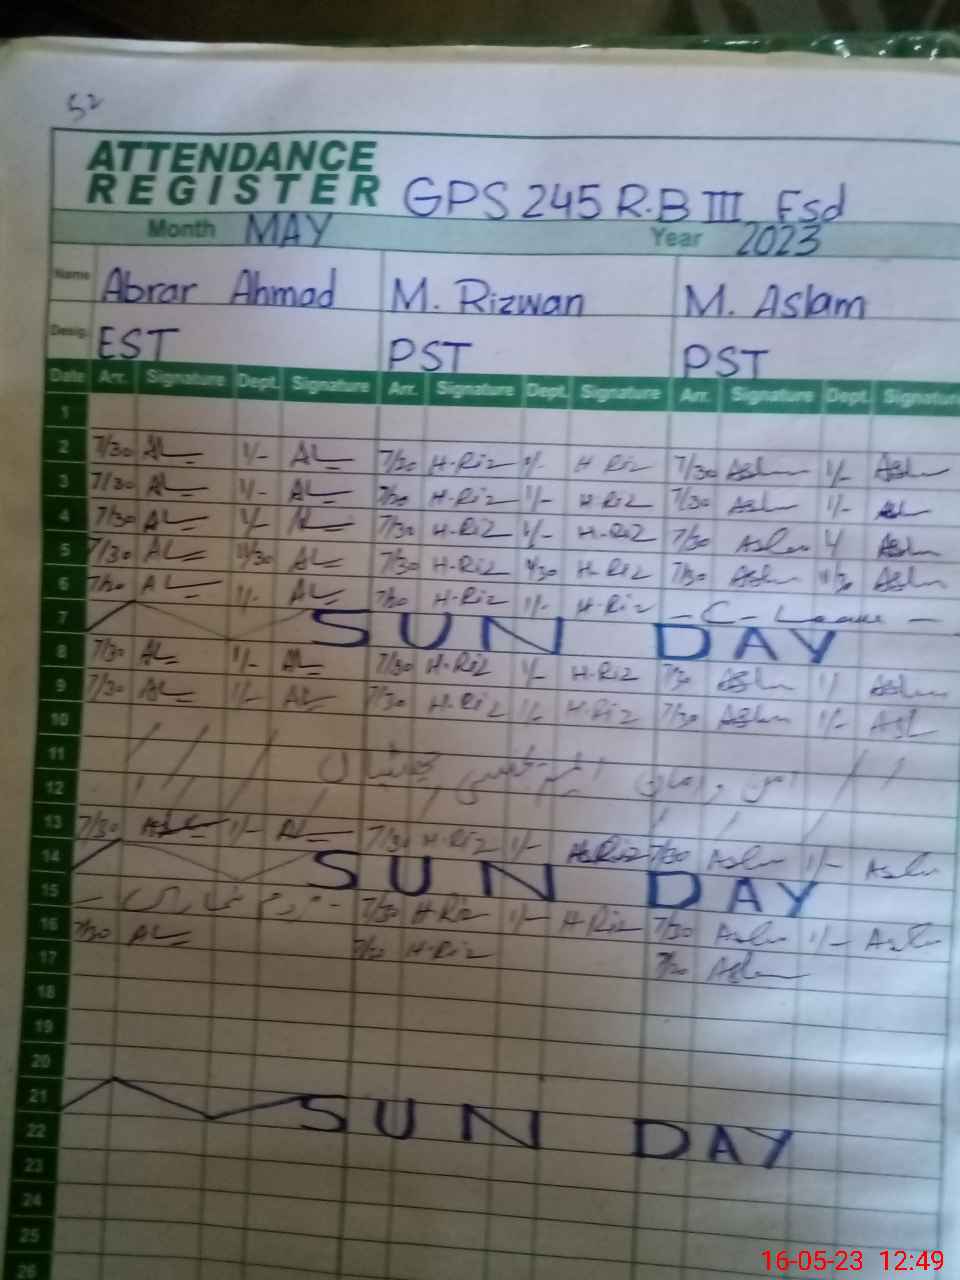 52
ATTENDANCE
REGISTER GPS 245 R.B III Fsd
Month MAY Year 2023
Name Abrar Ahmad M. Rizwan M. Aslam
Desig. EST PST PST
Date Arr. Signature Dept. Signature Arr. Signature Dept. Signature Arr. Signature Dept. Signature
1
2 7/30 AL 1/- AL 7/30 H-Riz 1/- H Riz 7/30 Aslm 1/- Aslm
3 7/30 AL 1/- AL 7/30 H-Riz 1/- H-Riz 7/30 Aslm 1/-
4 7/30 AL 1/- AL 7/30 H-Riz 1/- H-Riz 7/30 Aslm Aslm
5 7/30 AL 11/30 AL 7/30 H-Riz 11/30 H-Riz 7/30 Aslm 11/30 Aslm
6 7/30 AL 1/- AL 7/30 H-Riz 1/- H-Riz - C - Leave -
7 SUN DAY
8 7/30 AL 1/- AL 7/30 H-Riz 1/- H-Riz 7/30 Aslm Aslm
9 7/30 AL 1/- AL 7/30 H-Riz 1/- H-Riz 7/30 Aslm 1/- Asl
10
11
12
13 7/30 1/- AL 7/30 H-Riz 1/- 7/30 Aslm 1/- Aslm
14 SUN DAY
15 7/30 H-Riz 1/- H-Riz 7/30 Aslm 1/- Asl
16 7/30 AL 7/30 H-Riz 7/30 Aslm
17
18
19
20
21 SUN DAY
22
23
24
25
26
16-05-23 12:49